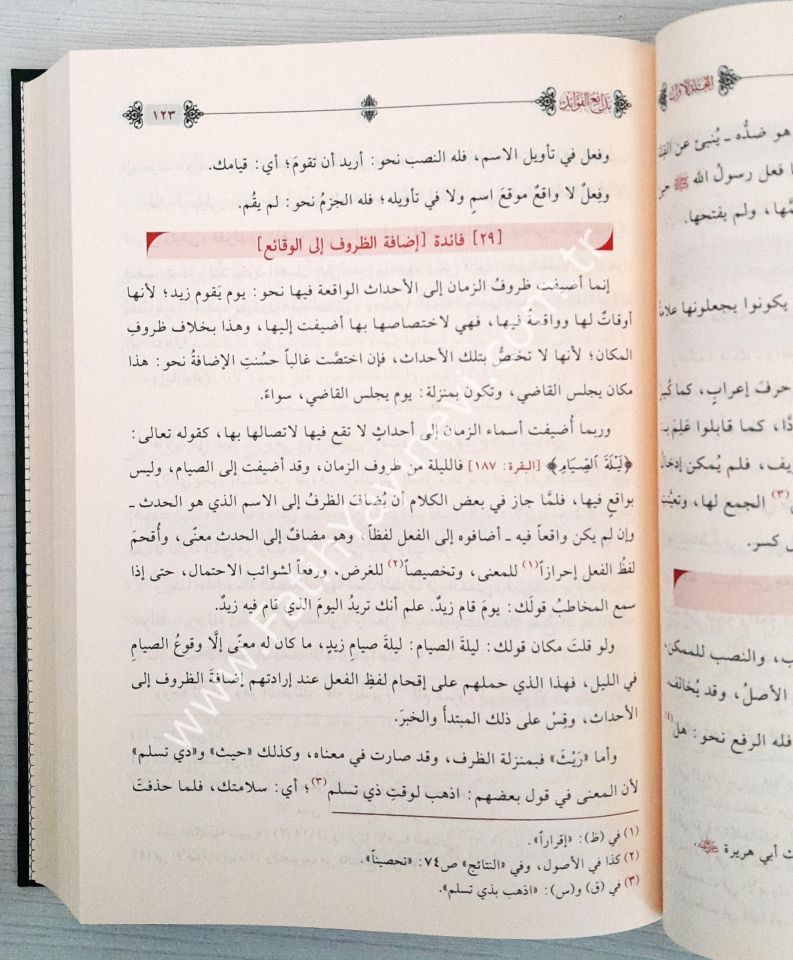 بدائع الفوائد
١٢٣
وفعل في تأويل الاسم، فله النصب نحو: أريد أن تقومَ؛ أي: قيامك.
وفِعلٌ لا واقعٌ موقعَ اسمٍ ولا في تأويله؛ فله الجزمُ نحو: لم يقُم.
[٢٩] فائدة [إضافة الظروف إلى الوقائع]
إنما أضيفت ظروفُ الزمان إلى الأحداث الواقعة فيها نحو: يوم يَقوم زيد؛ لأنها
أوقاتٌ لها وواقعةٌ فيها، فهي لاختصاصها بها أضيفت إليها، وهذا بخلاف ظروفِ
المكان؛ لأنها لا تختصُّ بتلك الأحداث، فإن اختصَّت غالباً حسُنتِ الإضافةُ نحو: هذا
مكان يجلس القاضي، وتكون بمنزلة: يوم يجلس القاضي، سواءً.
وربما أُضيفت أسماء الزمان إلى أحداثٍ لا تقع فيها لاتصالها بها، كقوله تعالى:
﴿لَيْلَةَ ٱلصِّيَامِ﴾ [البقرة: ١٨٧] فالليلة من ظروف الزمان، وقد أضيفت إلى الصيام، وليس
بواقع فيها، فلمَّا جاز في بعض الكلام أن يُضافَ الظرفُ إلى الاسم الذي هو الحدث ـ
وإن لم يكن واقعاً فيه ـ أضافوه إلى الفعل لفظاً، وهو مضافٌ إلى الحدث معنًى، وأُقحمَ
لفظُ الفعل إحرازاً(١) للمعنى، وتخصيصاً(٢) للغرض، ورفعاً لشوائب الاحتمال، حتى إذا
سمع المخاطبُ قولَك: يومَ قام زيدٌ. علم أنك تريدُ اليومَ الذي قام فيه زيدٌ.
ولو قلتَ مكان قولك: ليلةَ الصيام: ليلةَ صيامِ زيدٍ، ما كان له معنًى إلَّا وقوعُ الصيامِ
في الليل، فهذا الذي حملهم على إقحام لفظِ الفعل عند إرادتهم إضافةَ الظروف إلى
الأحداث، وقِسْ على ذلك المبتدأَ والخبرَ.
وأما «رَيْثَ» فبمنزلة الظرف، وقد صارت في معناه، وكذلك «حيث» و«ذي تسلم»
لأن المعنى في قول بعضهم: اذهب لوقتِ ذي تسلم(٣)؛ أي: سلامتك، فلما حذفتَ
(١) في (ظ): «إقراراً».
(٢) كذا في الأصول، وفي «النتائج» ص٧٤: «تحصيناً».
(٣) في (ق) و(س): «اذهب بذي تسلم».
www.FatihYayinevi.com.tr
المجلد الأول
هو ضدُّه ـ يُنبئ عن
ا فعل رسولُ الله ﷺ
مَّها، ولم يفتحها.
يكونوا يجعلونها
حرفَ إعرابٍ، كما
كما قابلوا
يف، فلم يُمكن
(٣) الجمع لها،
ل كسر.
ب، والنصب للممكن،
الأصلُ، وقد
فله الرفع نحو: هل
ث أبي هريرة